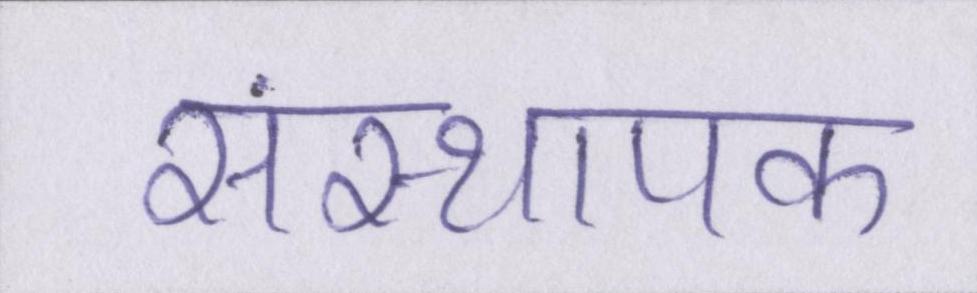 संस्थापक